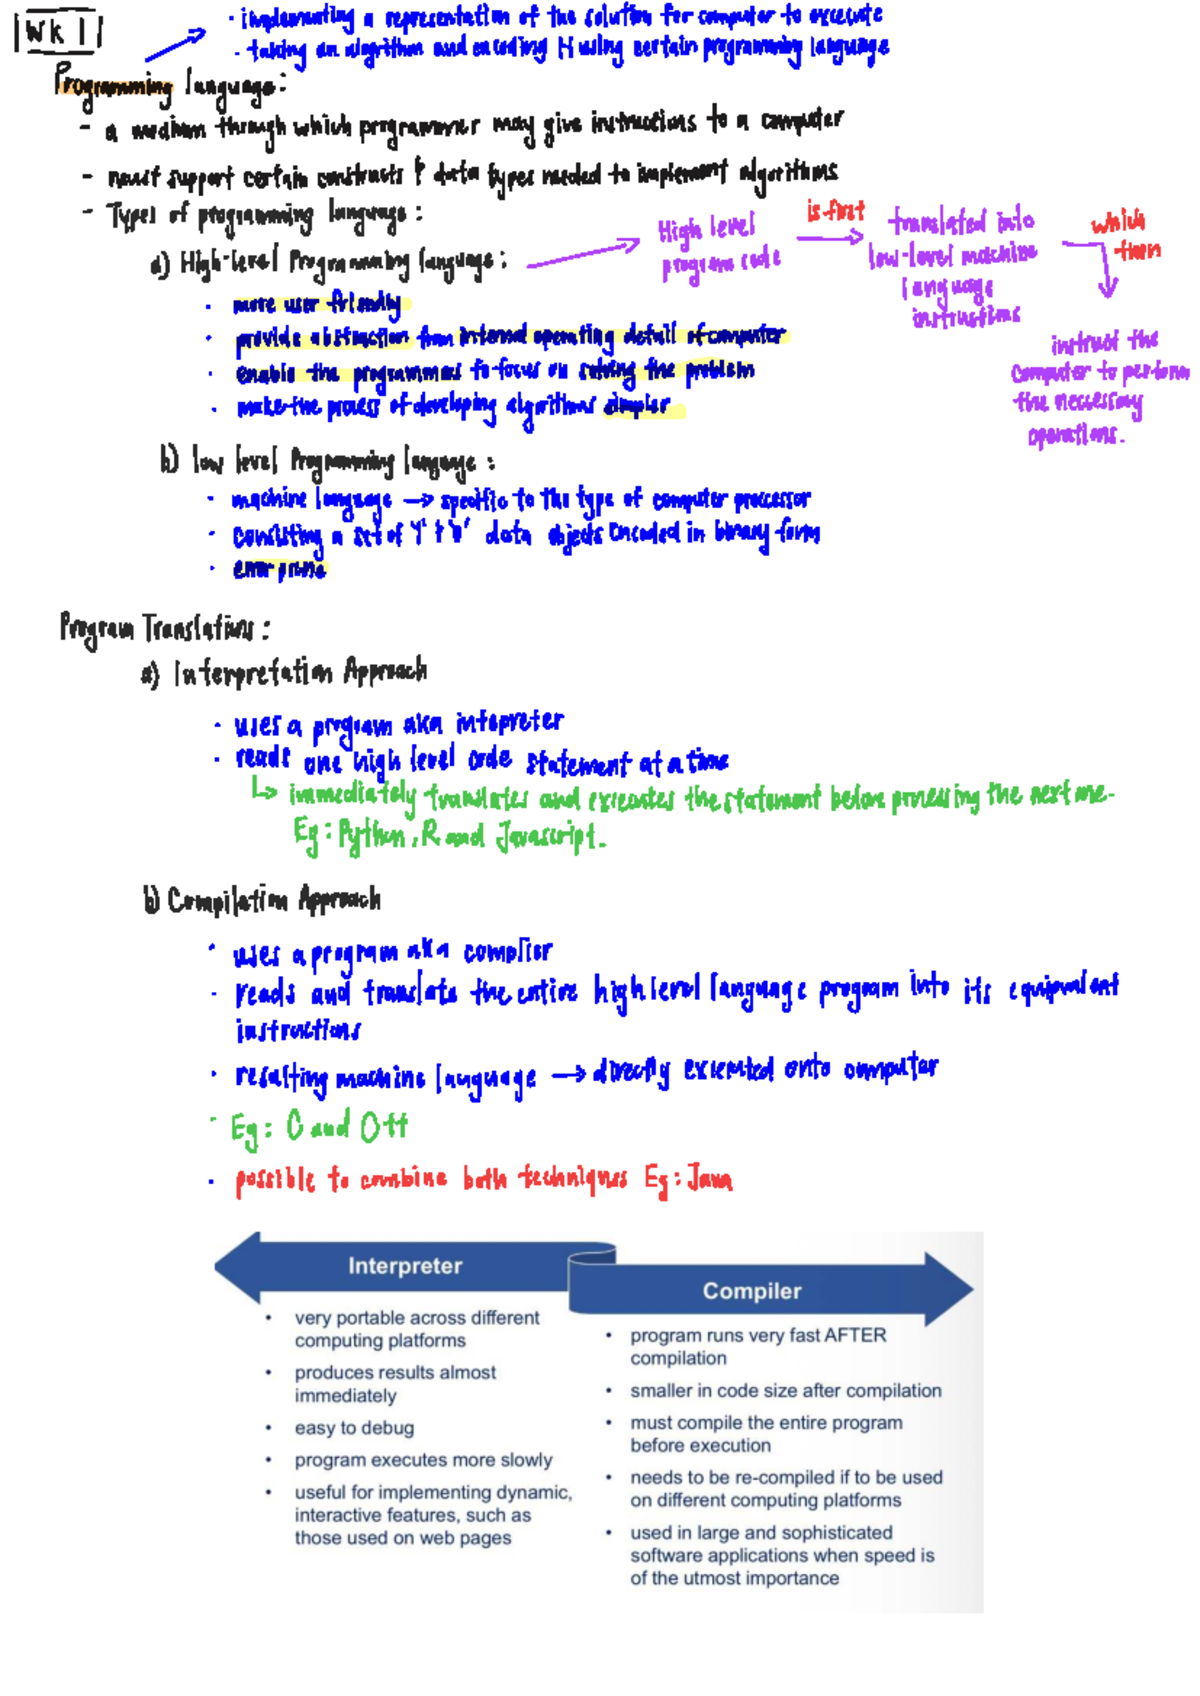 WK 1
· implementing a representation of the solution for computer to execute
· taking an algorithm and encoding it using certain programming language
Programming language:
- a medium through which programmer may give instructions to a computer
- must support certain constructs & data types needed to implement algorithms
- Types of programming language:
a) High-level Programming language:
High level program code
is first
translated into low-level machine language instructions
which then
instruct the computer to perform the necessary operations.
· more user friendly
· provide abstraction from internal operating detail of computer
· enable the programmers to focus on solving the problem
· make the process of developing algorithms simpler
b) low level Programming language:
· machine language → specific to the type of computer processor
· consisting a set of '1' & '0' data objects encoded in binary form
· error prone
Program Translations:
a) Interpretation Approach
· uses a program aka intepreter
· reads one high level code statement at a time
↳ immediately translates and executes the statement before processing the next one.
Eg: Python, R and Javascript.
b) Compilation Approach
· uses a program aka complier
· reads and translate the entire high level language program into its equivalent
instructions
· resulting machine language → directly executed onto computer
· Eg: C and C++
· possible to combine both techniques Eg: Java
Interpreter
• very portable across different
computing platforms
• produces results almost
immediately
• easy to debug
• program executes more slowly
• useful for implementing dynamic,
interactive features, such as
those used on web pages
Compiler
• program runs very fast AFTER
compilation
• smaller in code size after compilation
• must compile the entire program
before execution
• needs to be re-compiled if to be used
on different computing platforms
• used in large and sophisticated
software applications when speed is
of the utmost importance